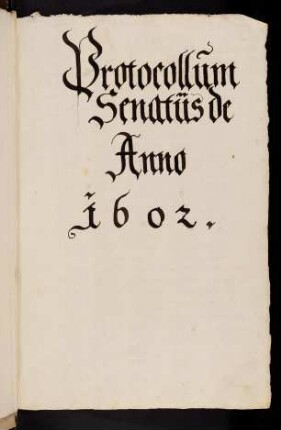 Protocollum
Senatus de
Anno
1602.